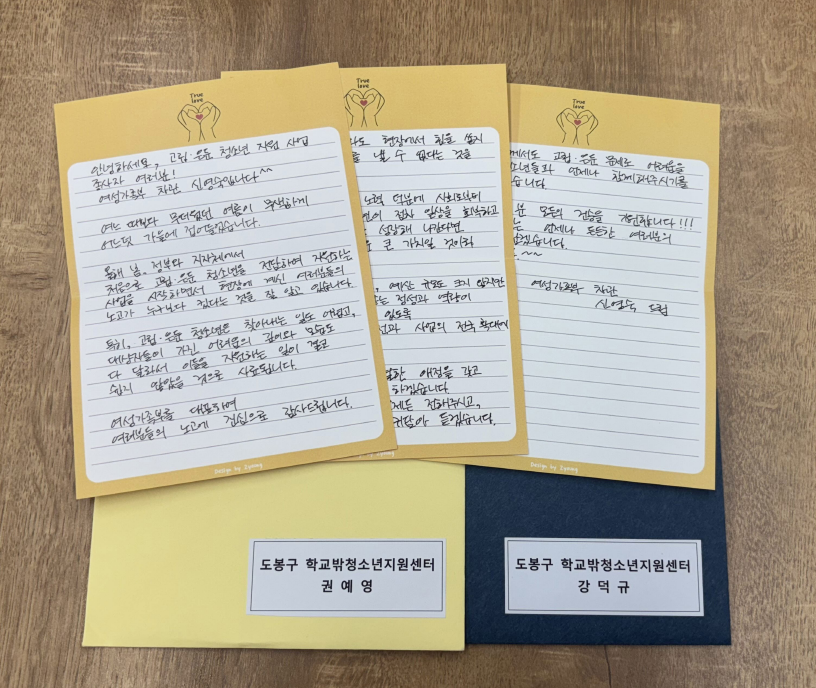 True
love
안녕하세요, 고립·은둔 청소년 지원 사업
종사자 여러분!
여성가족부 차관 신영숙입니다^^
여느 때보다 무더웠던 여름이 무색하게
어느덧 가을에 접어들었습니다.
올해 봄, 정부와 지자체에서
처음으로 고립·은둔 청소년을 전담하여 지원하는
사업을 시작하면서 현장에 계신 여러분들의
노고가 누구보다 컸다는 것을 잘 알고 있습니다.
특히, 고립·은둔 청소년은 찾아내는 일도 어렵고,
대상자들이 가진 어려움의 깊이와 모습도
다 달라서 이들을 지원하는 일이 결코
쉽지 않았을 것으로 사료됩니다.
여성가족부를 대표하여
여러분들의 노고에 진심으로 감사드립니다.
Design by Jiyoung
True
love
현장에서 힘을 쓰지
낼 수 없다는 것을
노력 덕분에 사회로부터
점차 일상을 회복하고
성장해 나간다면
큰 가치일 것이라
예산 규모도 크지 않지만
정성과 역량이
있도록
사업의 전국 확대에
애정을 갖고
하겠습니다.
전해주시고,
귀담아 듣겠습니다.
True
love
고립·은둔 문제로 어려움을
언제나 함께해주시기를
모두의 건승을 기원합니다!!!
언제나 든든한 여러분의
~~
여성가족부 차관
신영숙 드림
Design by Jiyoung
도봉구 학교밖청소년지원센터
권예영
도봉구 학교밖청소년지원센터
강덕규